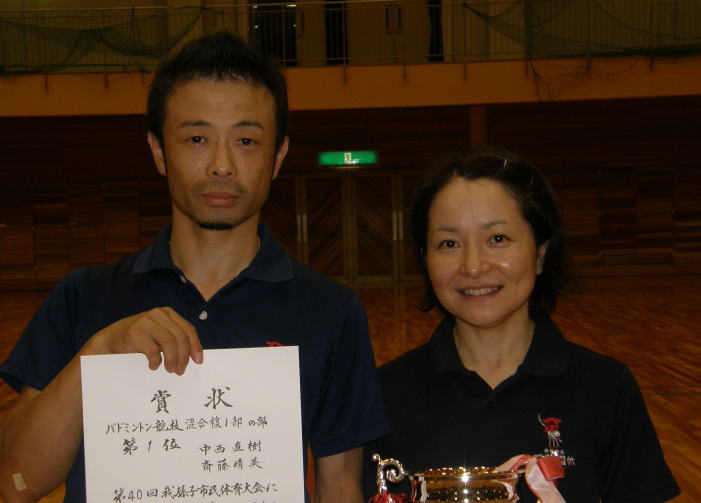 賞状
バドミントン競技 混合複1部の部
第1位 中西直樹
斎藤晴美
第40回我孫子市民体育大会に